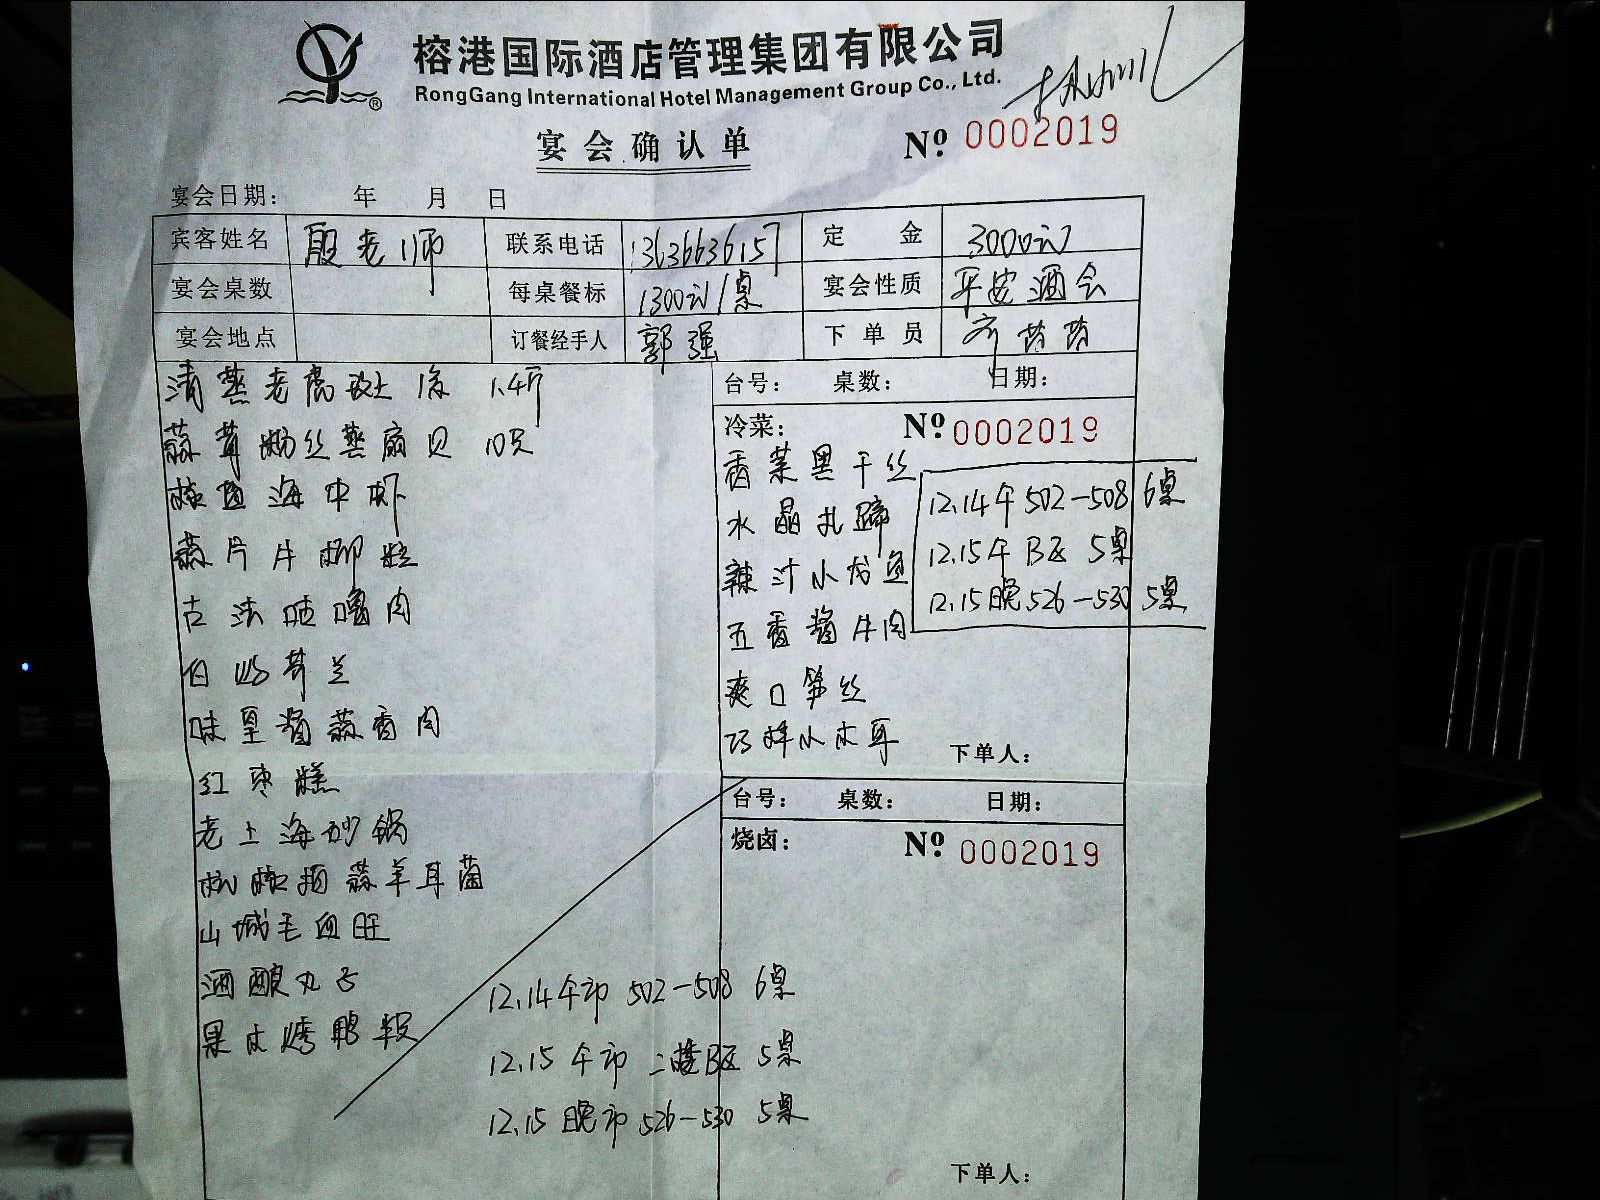 榕港国际酒店管理集团有限公司
RongGang International Hotel Management Group Co., Ltd.
宴会确认单
Nº 0002019
宴会日期: 年 月 日
宾客姓名 殷老师 联系电话 13636636157 定金 3000元
宴会桌数 每桌餐标 1300元/桌 宴会性质 平安酒会
宴会地点 订餐经手人 郭强 下单员 齐苗苗
清蒸老虎斑1条 1.4斤
蒜茸粉丝蒸扇贝 10只
椒盐海中虾
蒜片牛柳粒
古法咕噜肉
白灼芥兰
味皇酱蒜香肉
红枣糕
老上海砂锅
杭椒捣蒜羊耳菌
山城毛血旺
酒酿丸子
果木烤鸭
台号: 桌数: 日期:
冷菜: Nº 0002019
香菜黑干丝
水晶扎蹄
辣汁小龙鱼
五香酱牛肉
爽口笋丝
巧拌小木耳
12.14午 502-508 6桌
12.15午 B区 5桌
12.15晚 526-530 5桌
下单人:
台号: 桌数: 日期:
烧卤: Nº 0002019
12.14午市 502-508 6桌
12.15午市 二楼B区 5桌
12.15晚市 526-530 5桌
下单人: